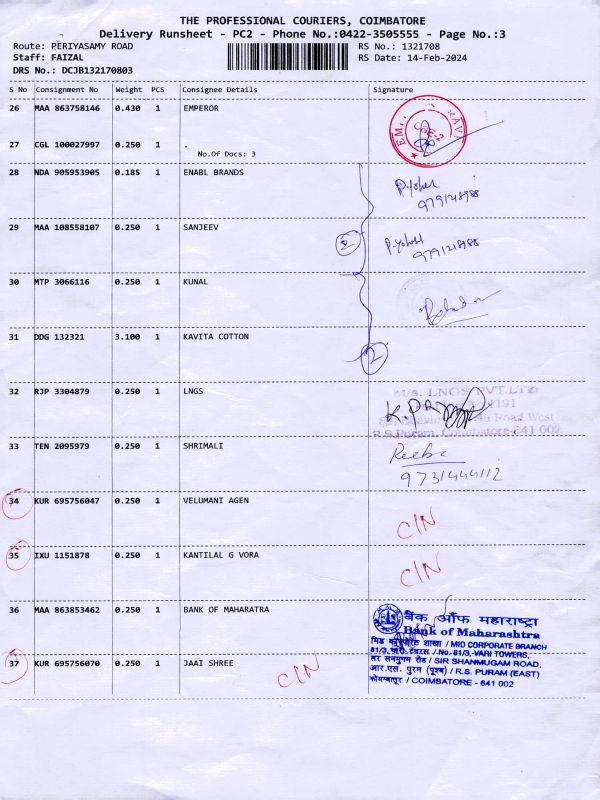 THE PROFESSIONAL COURIERS, COIMBATORE
Delivery Runsheet - PC2 - Phone No.:0422-3505555 - Page No.:3
Route: PERIYASAMY ROAD RS No.: 1321708
Staff: FAIZAL RS Date: 14-Feb-2024
DRS No.: DCJB132170803
S No Consignment No Weight PCS Consignee Details Signature
26 MAA 863758146 0.430 1 EMPEROR
27 CGL 100027997 0.250 1 .
No.Of Docs: 3
28 NDA 905953905 0.185 1 ENABL BRANDS
9791218988
29 MAA 108558107 0.250 1 SANJEEV
2
9791218988
30 MTP 3066116 0.250 1 KUNAL
31 DDG 132321 3.100 1 KAVITA COTTON
2
32 RJP 3304879 0.250 1 LNGS M/s. LNGS PVT.LTD
K.PR
R.S.Puram, Coimbatore-641 002
33 TEN 2095979 0.250 1 SHRIMALI Reeba
9731444112
34 KUR 695756047 0.250 1 VELUMANI AGEN C/N
35 IXU 1151878 0.250 1 KANTILAL G VORA C/N
36 MAA 863853462 0.250 1 BANK OF MAHARATRA बैंक ऑफ महाराष्ट्रा
Bank of Maharashtra
मिड कार्पोरेट शाखा / MID CORPORATE BRANCH
81/3, वारी टॅवरस / No. 81/3, VARI TOWERS,
37 KUR 695756070 0.250 1 JAAI SHREE C/N सर सनमुगम रोड / SIR SHANMUGAM ROAD,
आर.एस. पुरम (पूरब) / R.S. PURAM (EAST)
कोयम्बातूर / COIMBATORE - 641 002